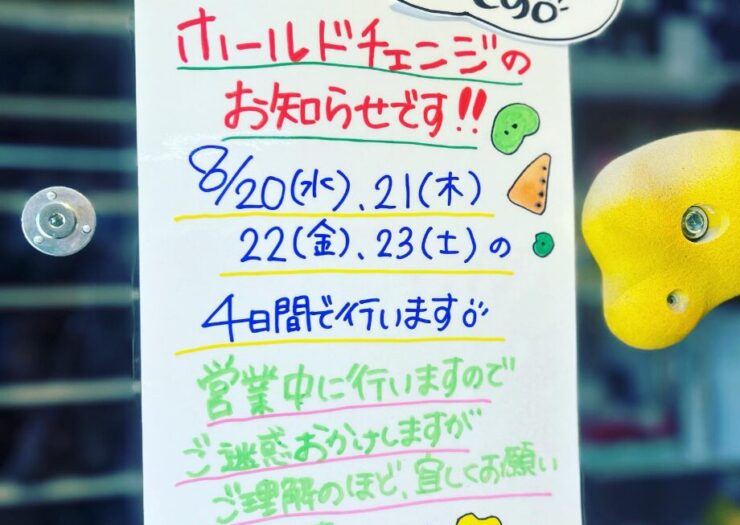 ホールドチェンジの
お知らせです!!
8/20(水)、21(木)
22(金)、23(土)の
4日間で行います。
営業中に行いますので
ご迷惑おかけしますが
ご理解のほど、宜しくお願い